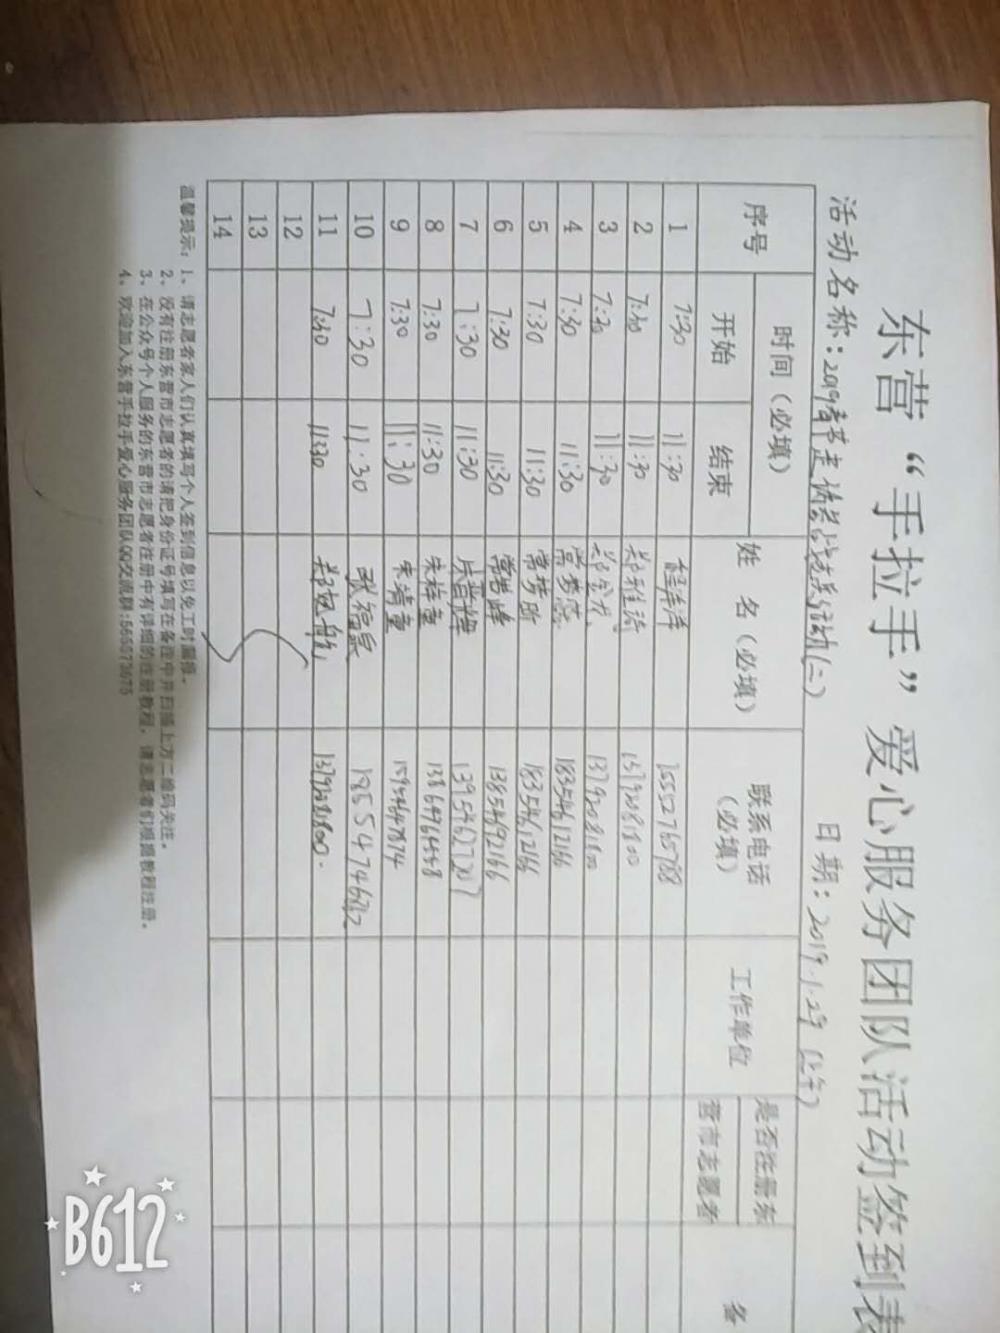 东营“手拉手”爱心服务团队活动签到表
活动名称：2019春节走访 活动(二) 日期：2019.1.29（上午）
序号 时间（必填） 姓 名（必填） 联系电话（必填） 工作单位 是否注册东营市志愿者 备
开始 结束
1 7:30 11:30 程洋洋 15552765788
2 7:30 11:30 郑雅 13792081800
3 7:30 11:30 郑 13792081800
4 7:30 11:30 常梦 18354612166
5 7:30 11:30 常梦 18354612166
6 7:30 11:30 常 峰 13854692166
7 7:30 11:30
8 7:30 11:30 朱梓童 13864764458
9 7:30 11:30 朱靖童 15954647874
10 7:30 11:30 耿福泉
11 7:30 11:30 13792081800
12
13
14
温馨提示：1、请志愿者家人们认真填写个人签到信息以免工时漏报。
2、没有注册东营市志愿者的请把身份证号填写在备注中并扫描上方二维码关注。
3、在公众号个人服务的东营市志愿者注册中有详细的注册教程，请志愿者们根据教程注册。
4、欢迎加入东营手拉手爱心服务团队QQ交流群:566073675
B612